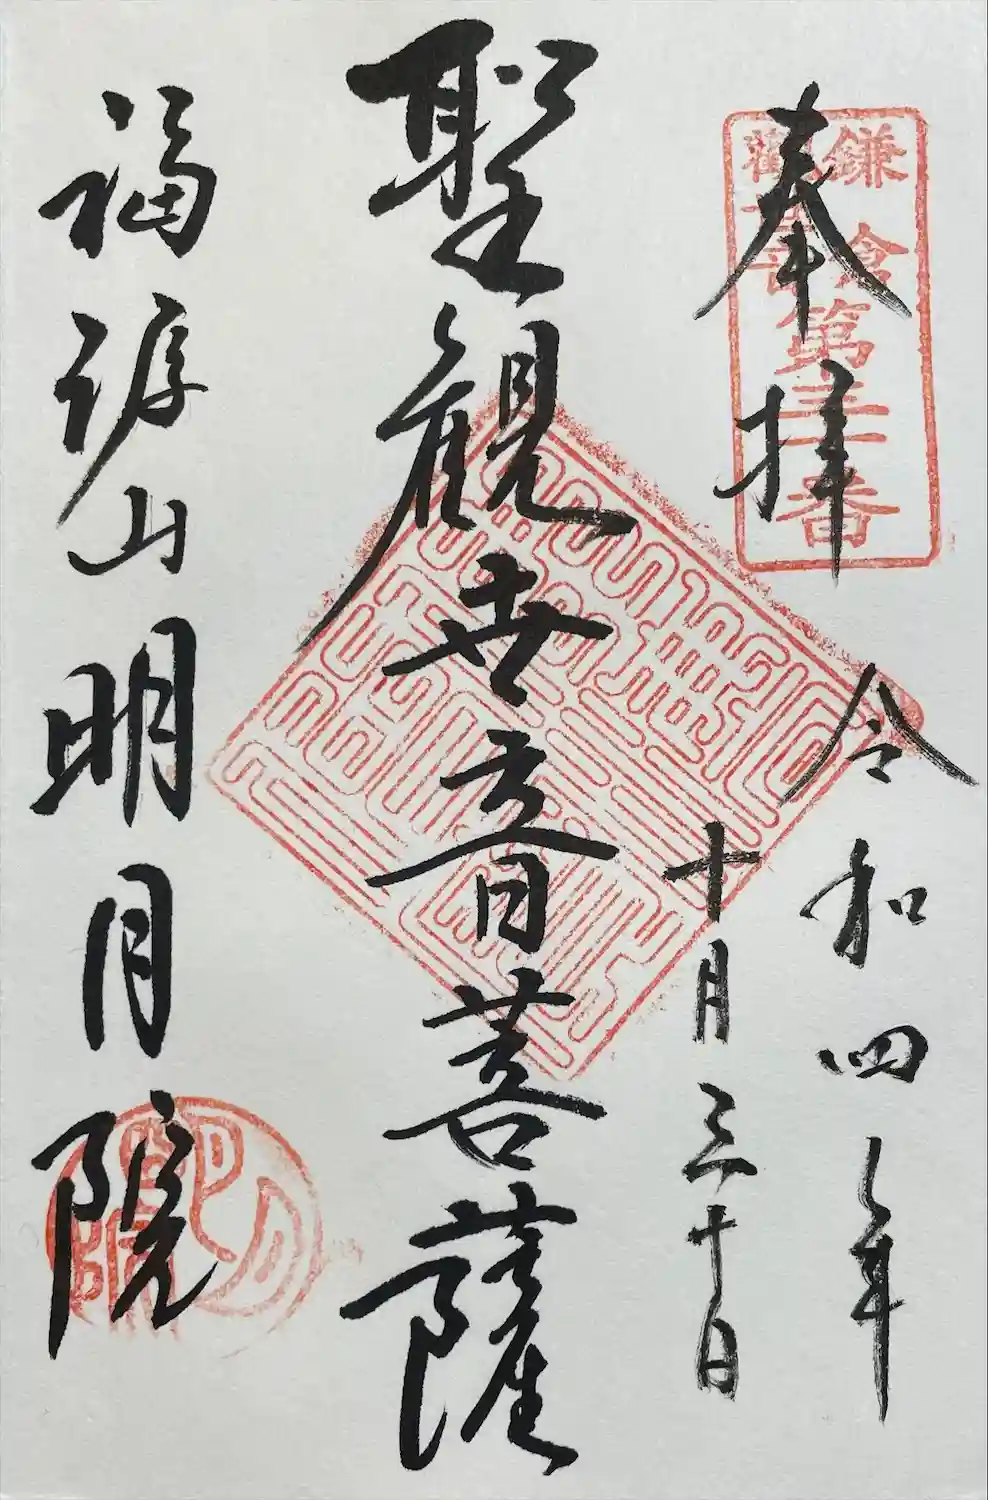 奉拝
鎌倉
観音
第三十番
令和四年
十月三十日
聖観世音菩薩
福源山明月院